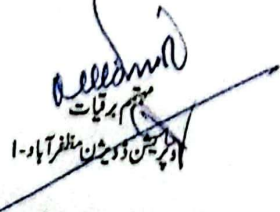 مہتمم برقیات
آپریشن ڈویژن مظفرآباد-I